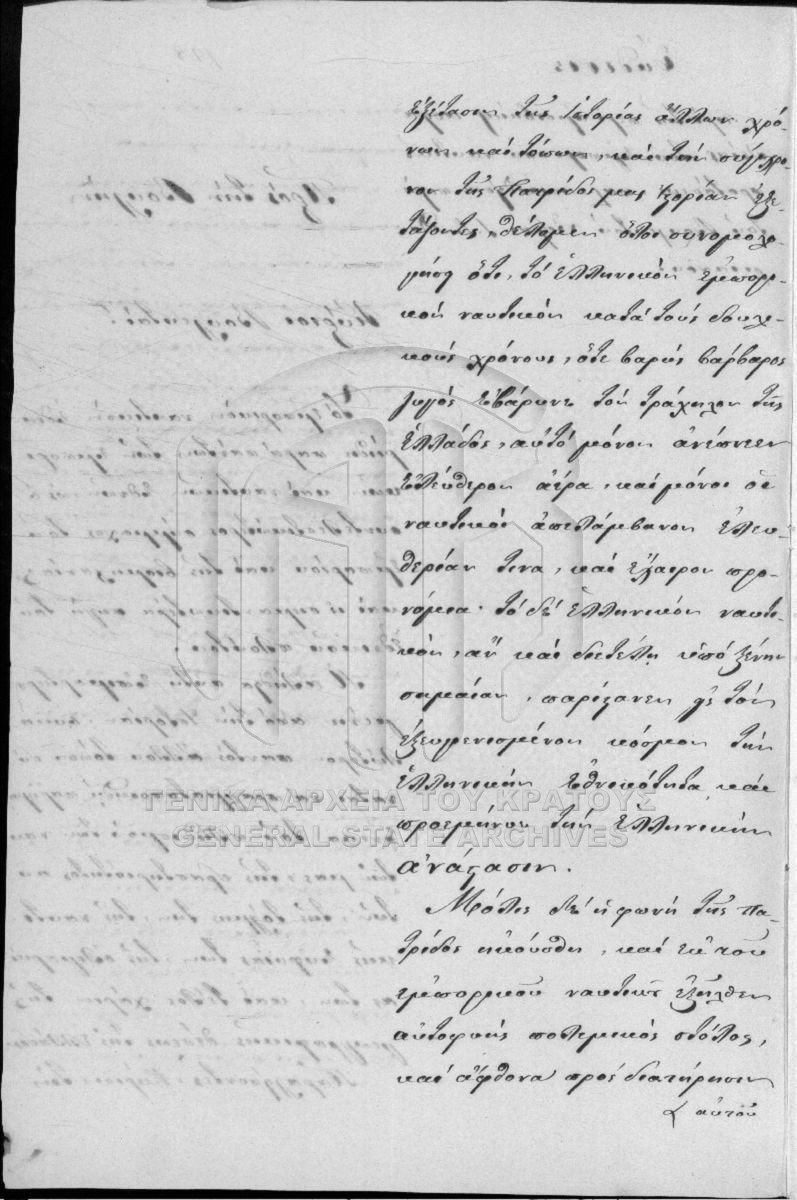 ἐξέτασιν τῆς ἱστορίας ἄλλων χρό-
νων καὶ τόπων, καὶ τὴν σύγχρο-
νον τῆς Πατρίδος μας ἱστορίαν ἐξε-
τάζοντες, θέλομεν ὅλοι συνομολο-
γήσῃ ὅτι, τὸ Ἑλληνικὸν ἐμπορι-
κὸν ναυτικὸν κατὰ τοὺς δουλι-
κοὺς χρόνους, ὅτε βαρὺς βάρβαρος
ζυγὸς ἐβάρυνε τὸν τράχηλον τῆς
Ἑλλάδος, αὐτὸ μόνον ἀνέπνεεν
ἐλεύθερον ἀέρα, καὶ μόνοι οἱ
ναυτικοὶ ἀπελάμβανον ἐλευ-
θερίαν τινα, καὶ ἔχαιρον προ-
νόμια· τὸ δὲ Ἑλληνικὸν ναυτι-
κὸν, ἂν καὶ διετέλῃ ὑπὸ ξένην
σημαίαν, παρίστανεν εἰς τὸν
ἐξευγενισμένον κόσμον τὴν
Ἑλληνικὴν ἐθνικότητα, καὶ
προεμήνυε τὴν Ἑλληνικὴν
ἀνάστασιν.
Μόλις δὲ ἡ φωνὴ τῆς πα-
τρίδος ἠκούσθη, καὶ ἐκ τοῦ
ἐμπορικοῦ ναυτικοῦ ἐξῆλθεν
αὐτοφυὴς πολεμικὸς στόλος,
καὶ ἄφθονα πρὸς διατήρησιν
αὐτοῦ
ΓΕΝΙΚΑ ΑΡΧΕΙΑ ΤΟΥ ΚΡΑΤΟΥΣ
GENERAL STATE ARCHIVES